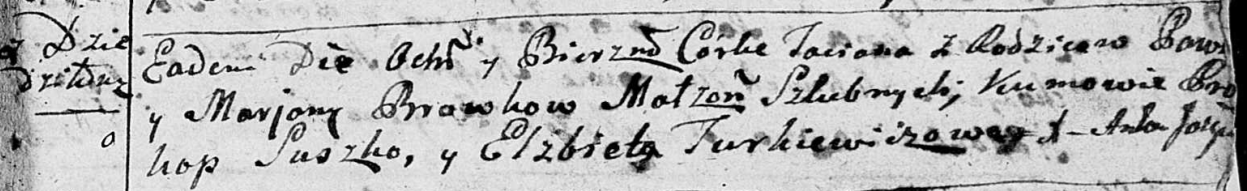 z Dzie
dziłowicz
Eadem Die Ochr. y Bierzm. Córkę Taciana z Rodzicow Paw
y Marjany Browkow Małżoń Szlubnych; Kumowie Pro
kop Suszko, y Elżbieta Turkiewiczowa